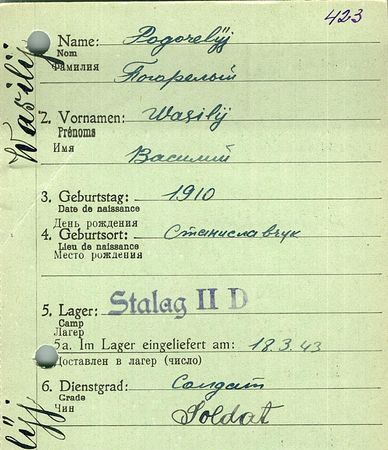 423
1. Name: Pogorelÿj
Nom
Фамилия
Погорелый
Wasilij
2. Vornamen: Wasilÿ
Prénoms
Имя
Василий
3. Geburtstag: 1910
Date de naissance
День рождения
4. Geburtsort: Станиславчук
Lieu de naissance
Место рождения
5. Lager: Stalag II D
Camp
Лагер
5a. Im Lager eingeliefert am: 18.3.43
Доставлен в лагер (число)
6. Dienstgrad: Солдат
Grade
Чин
Soldat
lÿj